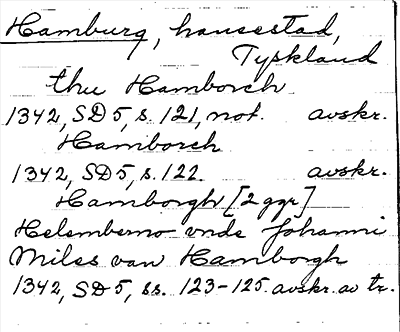 Hamburg, hansestad,
Tyskland
thu Hamborch
1342, SD 5, s. 121, not. avskr.
Hamborch
1342, SD 5, s. 122. avskr.
Hamborgh [2 ggr]
Helemberno vnde Johanni
Miles van Hamborgh
1342, SD 5, ss. 123-125. avskr. av tr.